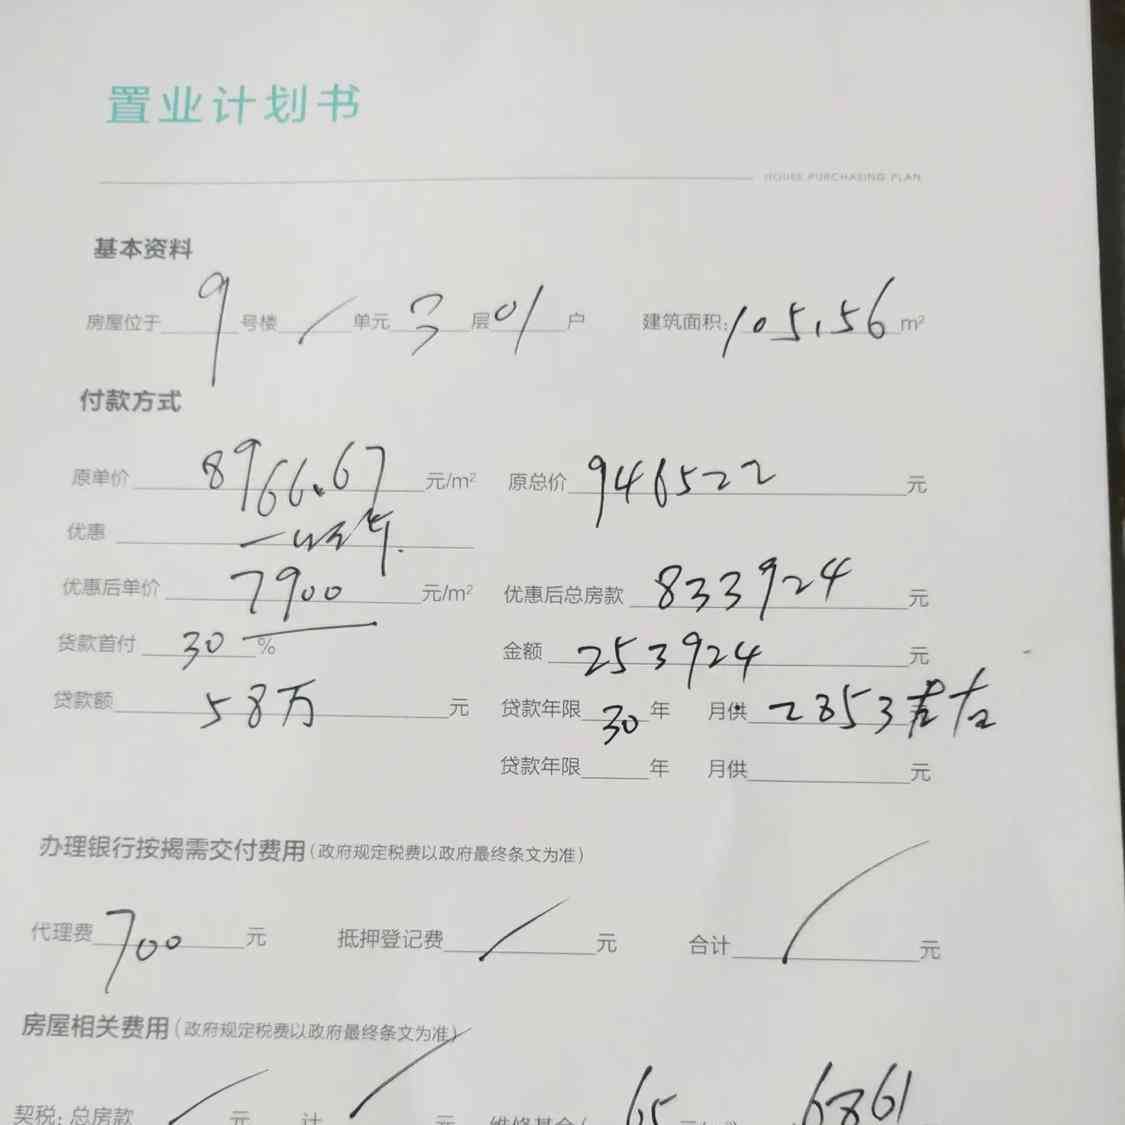 置业计划书
HOUSE PURCHASING PLAN
基本资料
房屋位于 9 号楼 / 单元 3 层 01 户 建筑面积: 105.56 m²
付款方式
原单价 8966.67 元/m² 原总价 946522 元
优惠 一
优惠后单价 7900 元/m² 优惠后总房款 833924 元
贷款首付 30 % 金额 253924 元
贷款额 58万 元 贷款年限 30 年 月供 2853左右
贷款年限 年 月供 元
办理银行按揭需交付费用(政府规定税费以政府最终条文为准)
代理费 700 元 抵押登记费 / 元 合计 / 元
房屋相关费用(政府规定税费以政府最终条文为准)
契税: 总房款 / 元 计 / 元 维修基金( 65 元/m²) 6861